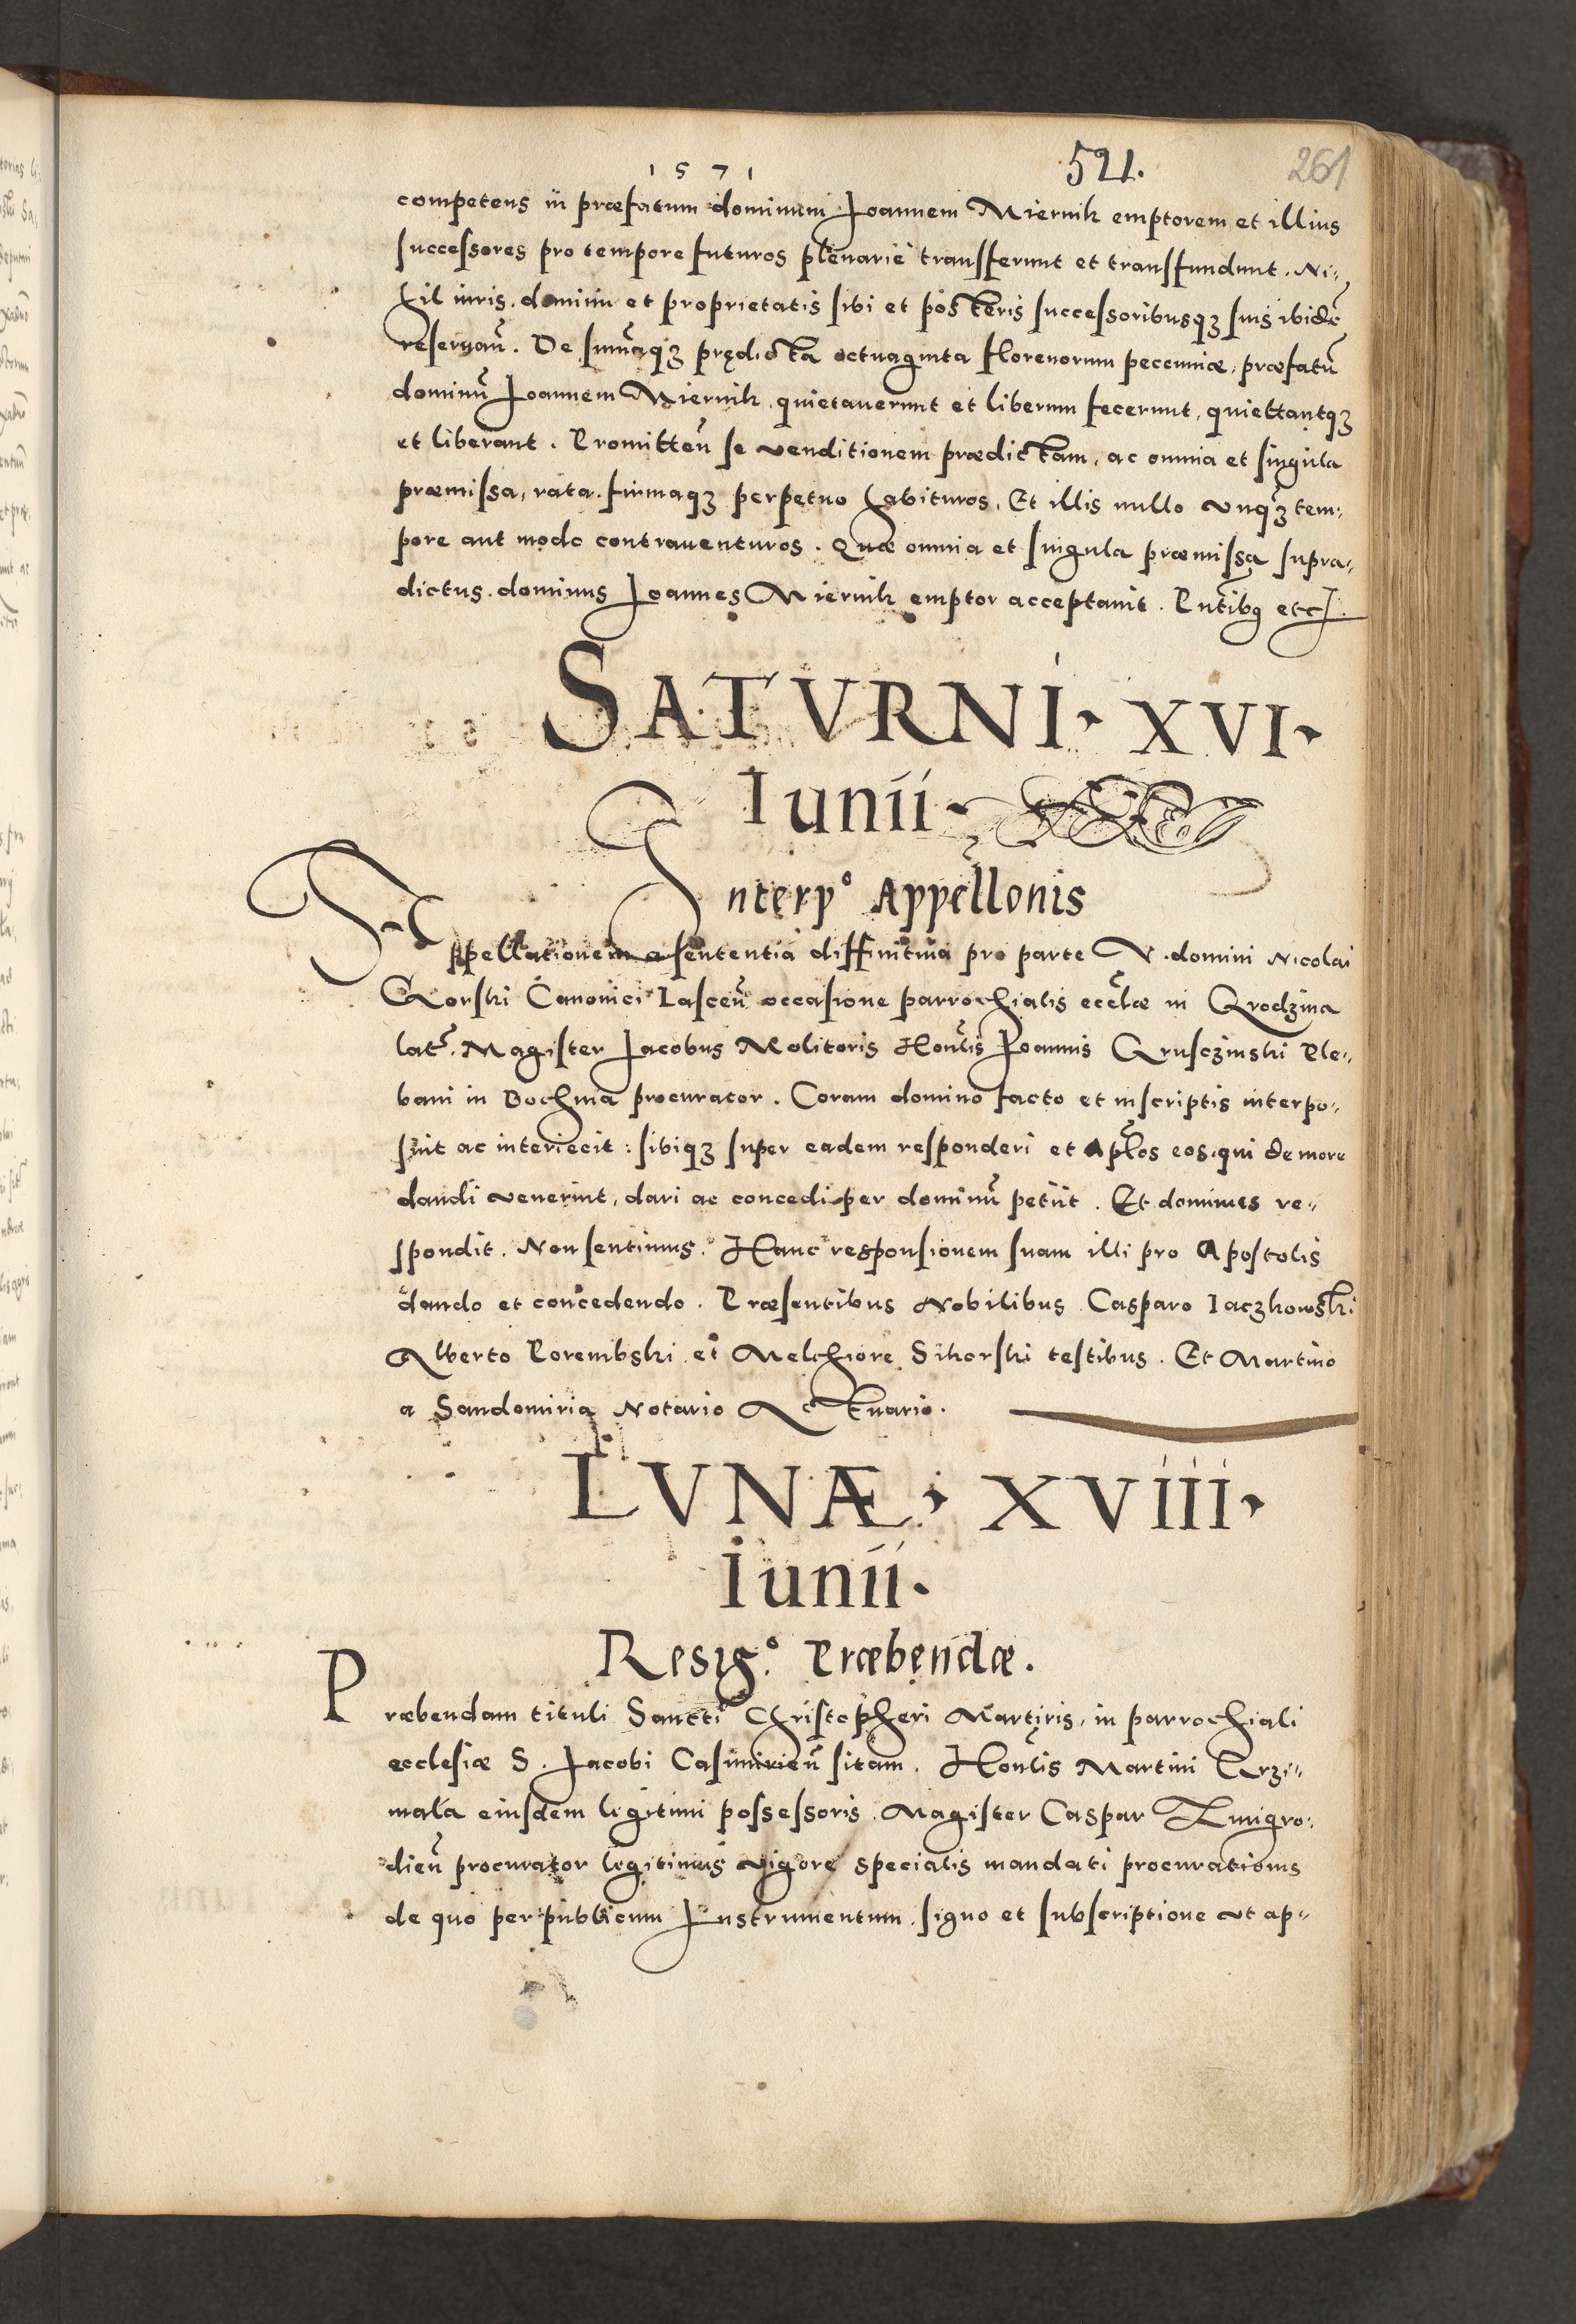 1571
521.
261
competens in præfatum dominum Joannem Miernik emptorem et illius
successores pro tempore futuros plenariè transferunt et transfundunt. Ni-
hil iuris. dominii et proprietatis sibi et posteris successoribusqꝫ suis ibidẽ
reseruan̄. De summaqꝫ prędicta octuaginta florenorum pecuniæ, præfatũ
dominũ Joannem Miernik quietauerunt et liberum fecerunt, quiettantqꝫ
et liberant. Promitten̄ se venditionem prædictam, ac omnia et singula
præmissa, rata. firmaqꝫ perpetuo habituros. Et illis nullo vnqꝫ tem-
pore aut modo contrauenturos. Quæ omnia et singula præmissa supra-
dictus. dominus Joannes Miernik emptor acceptauit. Pñtibꝫ etc.
SATVRNI. XVI.
Iunii.
Interpo Appellonis
Appellationem a sententia diffinitiua pro parte V. domini Nicolai
Gorski Canonici Lasceñ occasione parrochialis eccłæ in Grodzina
lat. Magister Jacobus Molitoris Honłis Joannis Grusczinski Ple-
bani in Bochnia procurator. Coram domino facto et inscriptis interpo-
suit ac interiecit: sibiqꝫ super eadem responderi et Apłos eos, qui de more
dandi venerint, dari ac concedi per dominũ petiit. Et dominus re-
spondit. Non sentimus. Hanc responsionem suam illi pro Apostolis
dando et concedendo. Præsentibus Nobilibus Casparo Iaczkowski
Alberto Porembski et Melchiore Sikorski testibus. Et Martino
a Sandomiria Notario Actuario.
LVNÆ. XVIII.
Iunii.
Resigo. Præbendæ.
Præbendam tituli Sancti Christopheri Martiris, in parrochiali
ecclesiæ S. Jacobi Casimirieñ sitam. Honłis Martini Krzi-
mala eiusdem ligitimi possessoris. Magister Caspar Zmigro-
dieñ procurator ligitimus vigore specialis mandati procurationis
de quo per publicum Instrumentum. signo et subscriptione vt ap-